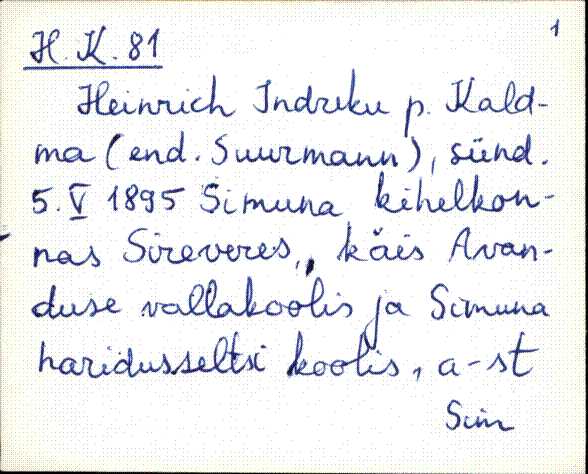 1
H. K. 81
Heinrich Indreku p. Kald-
ma (end. Suurmann), sünd.
5. V 1895 Simuna kihelkon-
nas Sireveres, käis Avan-
duse vallakoolis ja Simuna
haridusseltsi koolis, a-st
Sim